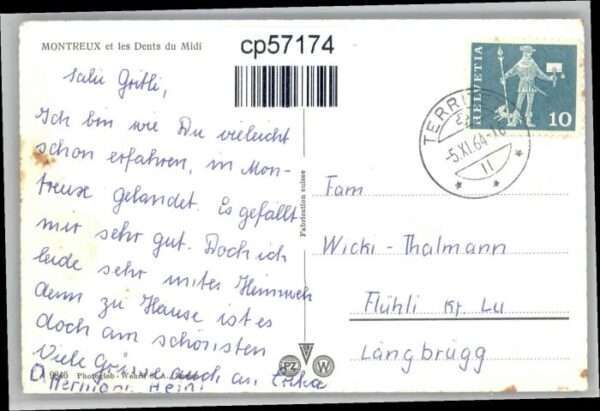 MONTREUX et les Dents du Midi
cp57174
HELVETIA
10
TERRIT
-5.XI.64-
11
Salü Gritli,
Ich bin wie Du vieleicht
schon erfahren, in Mon-
treux gelandet. Es gefällt
mir sehr gut. Doch ich
leide sehr unter Heimweh
denn zu Hause ist es
doch am schönsten
Viele Grüsse auch an Erika
Hermann Heini
Fabrication suisse
Fam
Wicki-Thalmann
Flühli Kt. Lu
Längbrügg
9846
PZ
W